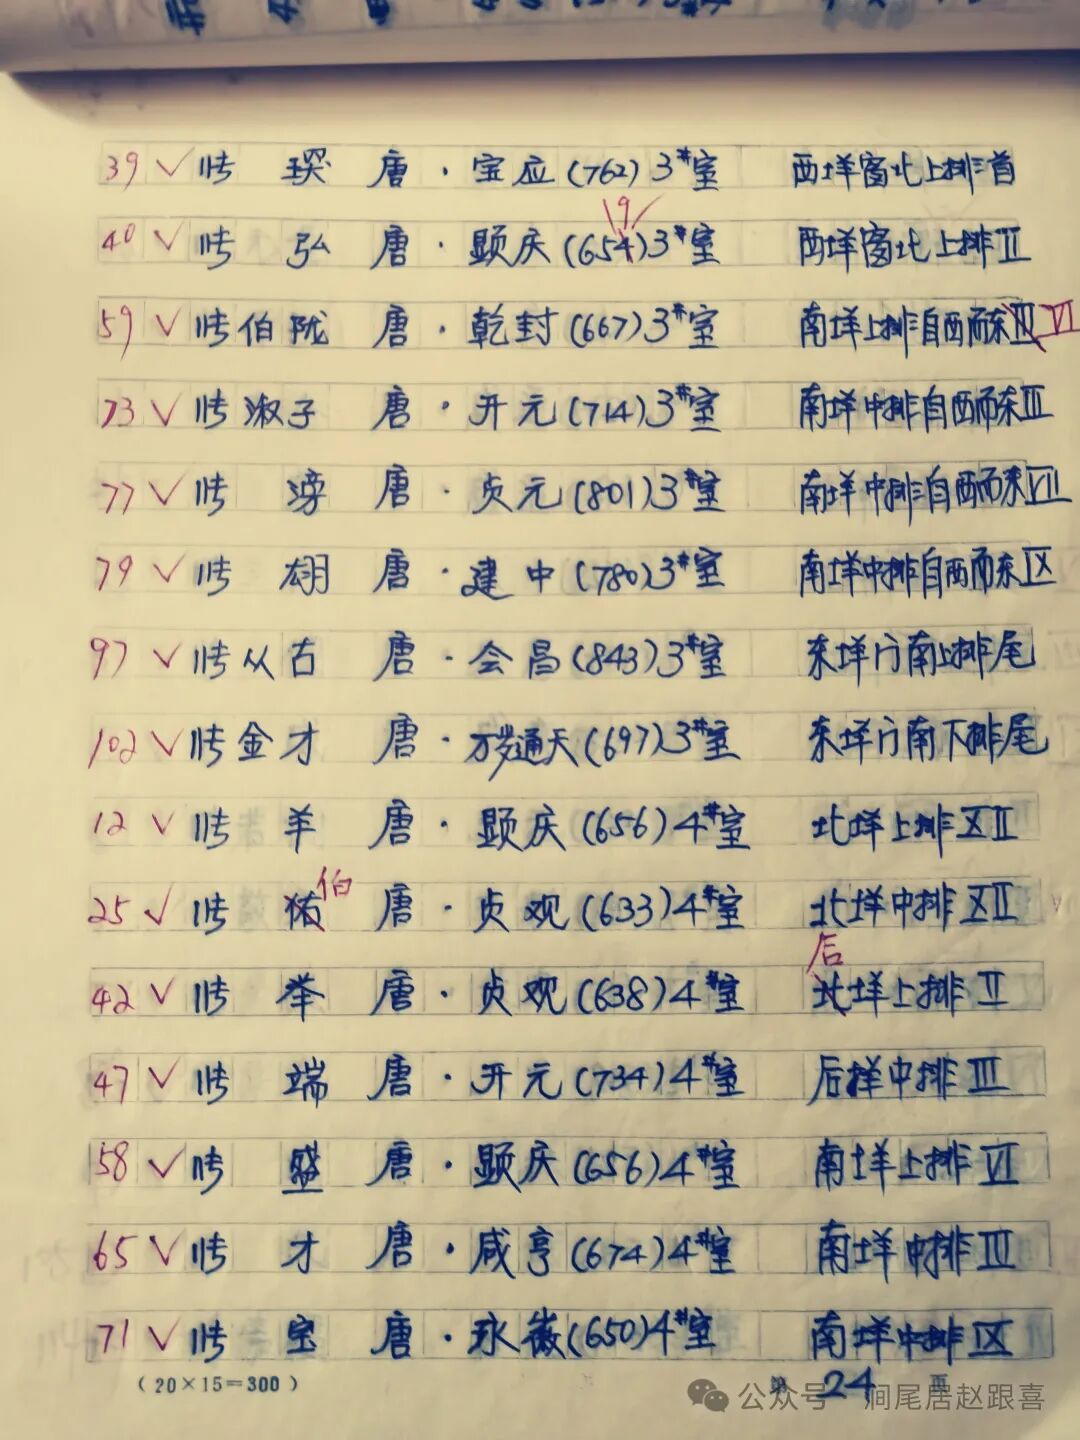 39 ✓ 张 琛 唐·宝应(762)3#室 西垟窗北上排首
9
40 ✓ 张 弘 唐·显庆(654)3#室 西垟窗北上排Ⅱ
59 ✓ 张伯陇 唐·乾封(667)3#室 南垟上排自西而东Ⅲ Ⅵ
73 ✓ 张淑子 唐·开元(714)3#室 南垟中排自西而东Ⅲ
77 ✓ 张 滂 唐·贞元(801)3#室 南垟中排自西而东Ⅶ
79 ✓ 张 翃 唐·建中(780)3#室 南垟中排自西而东Ⅸ
97 ✓ 张从古 唐·会昌(843)3#室 东垟门南上排尾
102 ✓ 张金才 唐·万岁通天(697)3#室 东垟门南下排尾
12 ✓ 张 羊 唐·显庆(656)4#室 北垟上排Ⅻ
伯
25 ✓ 张 唐·贞观(633)4#室 北垟中排Ⅻ
后
42 ✓ 张 举 唐·贞观(638)4#室 北垟上排Ⅱ
47 ✓ 张 端 唐·开元(734)4#室 后垟中排Ⅲ
58 ✓ 张 盛 唐·显庆(656)4#室 南垟上排Ⅵ
65 ✓ 张 才 唐·咸亨(674)4#室 南垟中排Ⅲ
71 ✓ 张 宝 唐·永徽(650)4#室 南垟中排Ⅸ
(20×15=300) 第 24 页
公众号 涧尾居赵跟喜